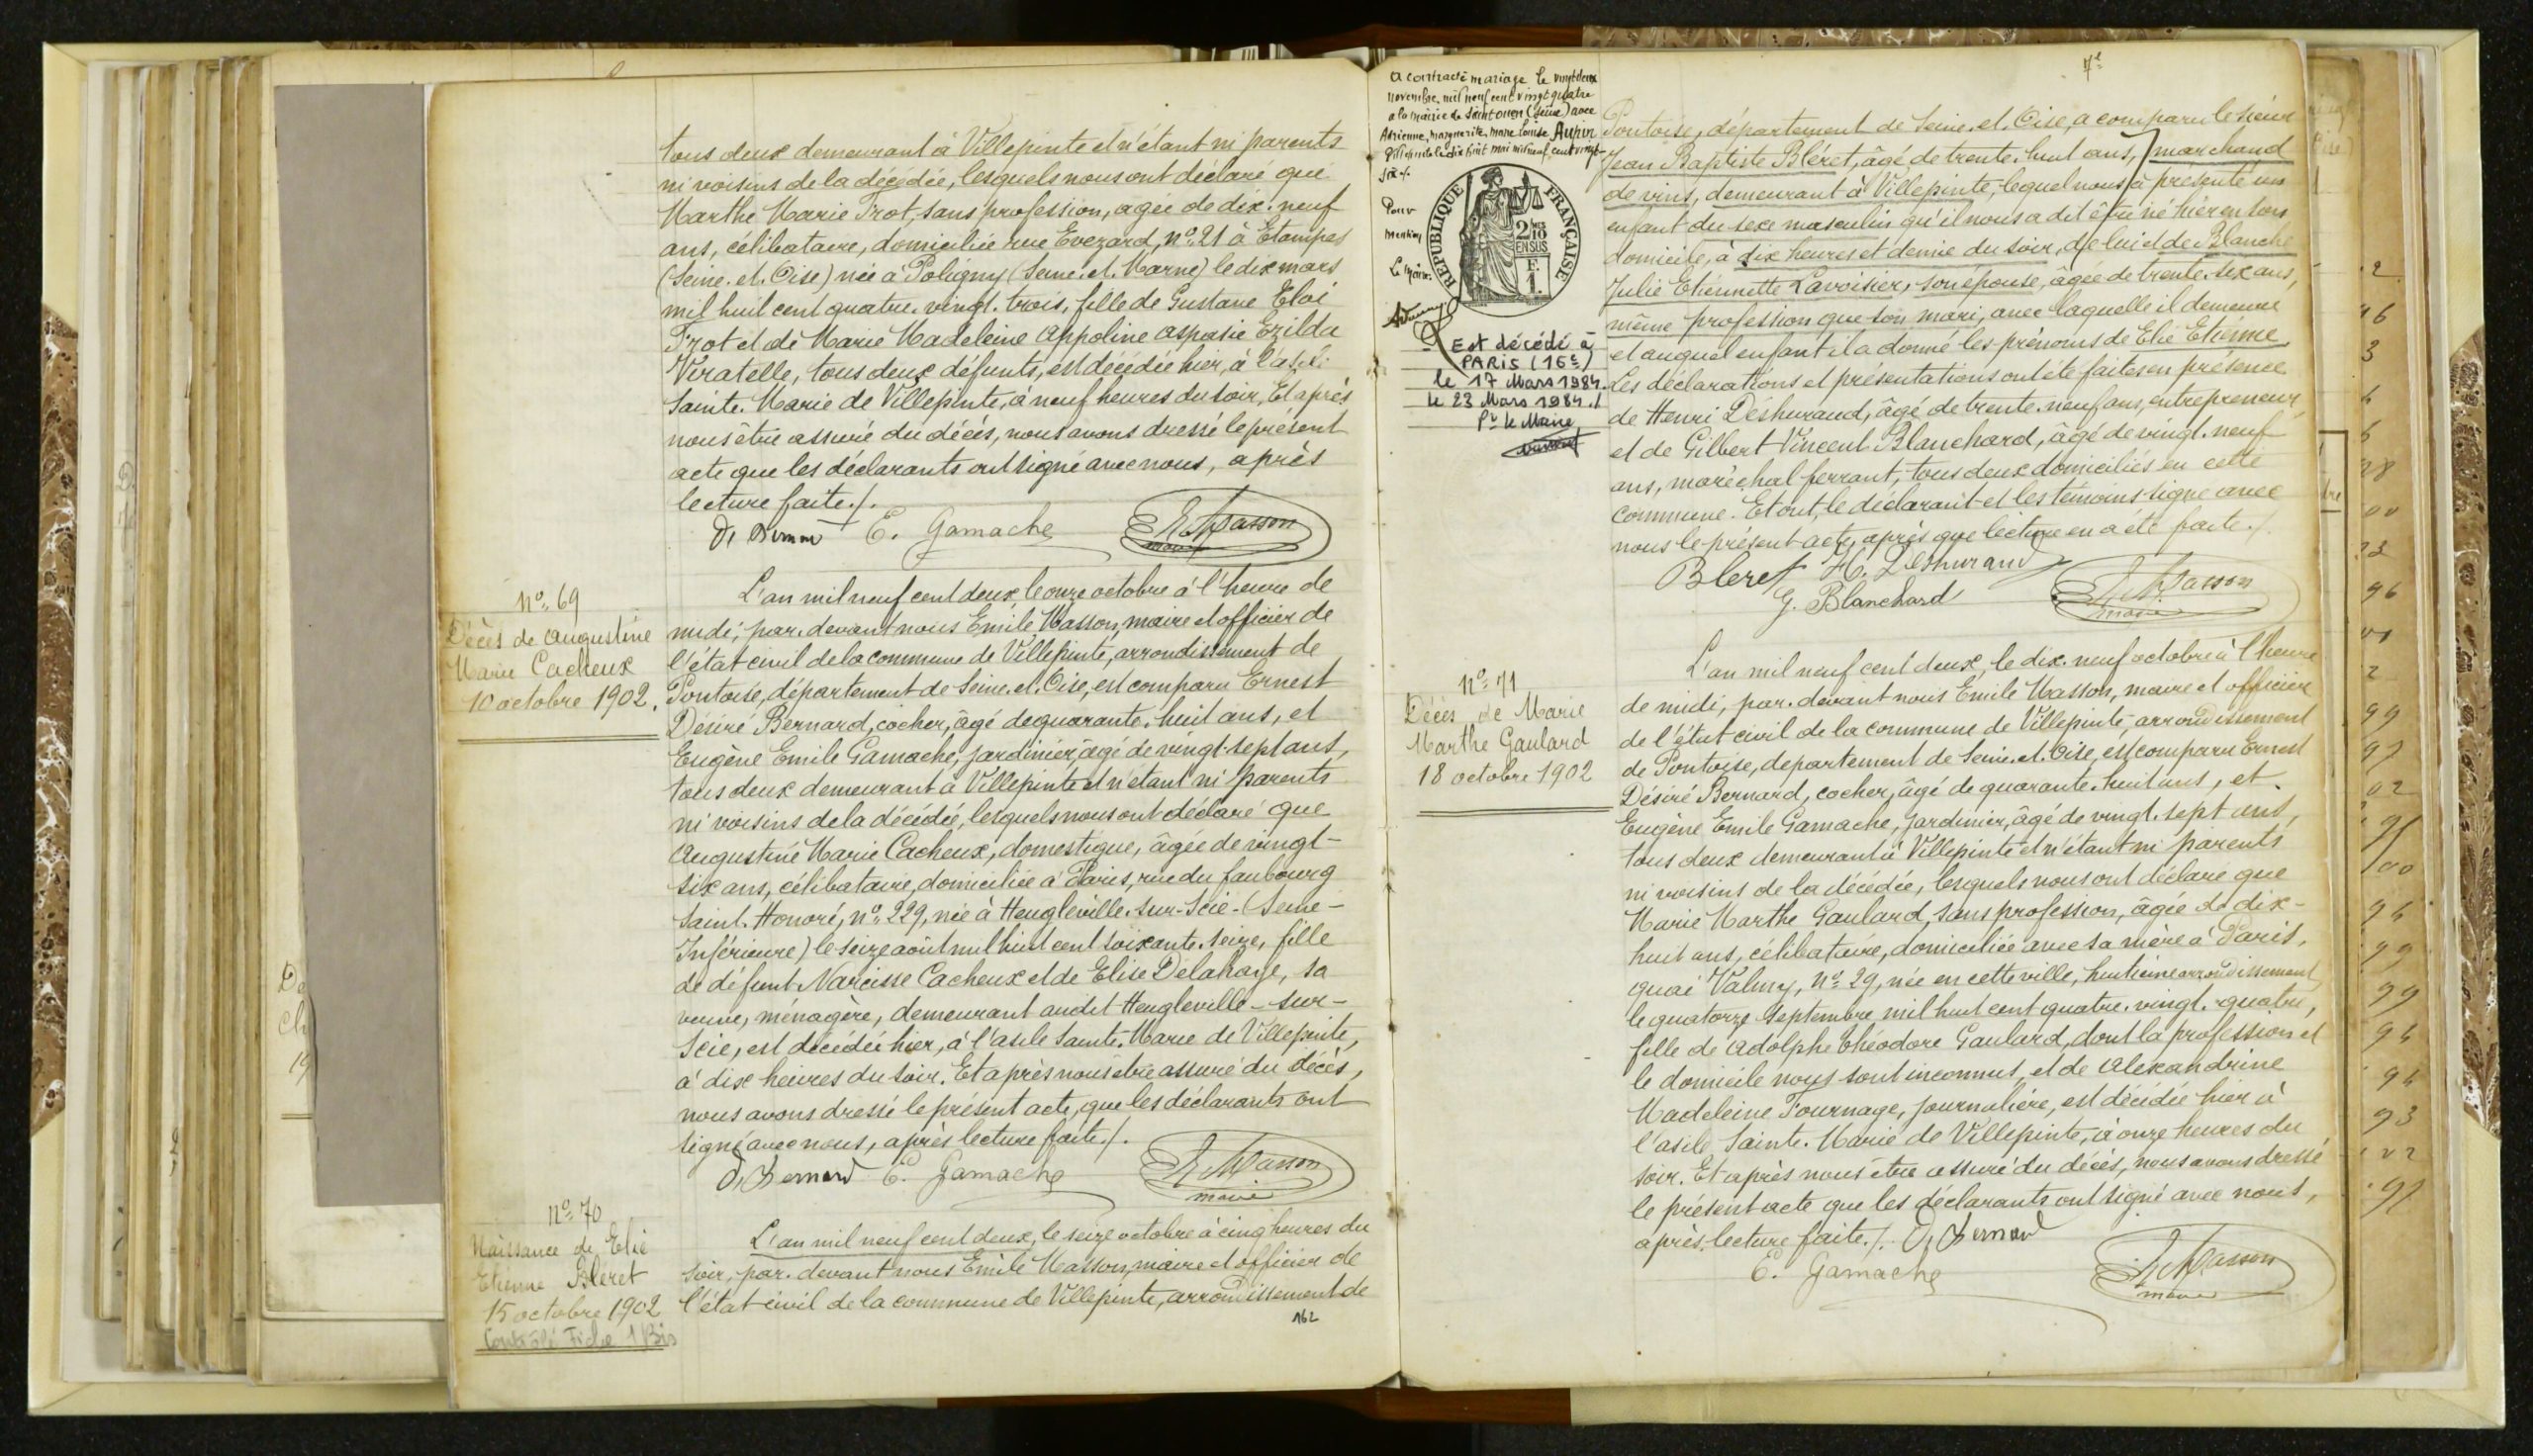 tous deux demeurant à Villepinte et n'étant ni parents
ni voisins de la décédée, lesquels nous ont déclaré que
Marthe Marie Trot, sans profession, agée de dix-neuf
ans, célibataire, domiciliée rue Evezard, nº 21 à Etampes
(Seine-et-Oise) née à Poligny (Seine-et-Marne) le dix mars
mil huit cent quatre-vingt-trois, fille de Gustave Eloi
Trot et de Marie Madeleine Appoline Aspasie Ezilda
Viratelle, tous deux défunts, est décédée hier, à l'asile
Sainte-Marie de Villepinte, à neuf heures du soir, Et après
nous être assuré du décès, nous avons dressé le présent
acte que les déclarants ont signé avec nous, après
lecture faite./.
E. Gamache E. Masson
maire
Nº 69
Décès de Augustine
Marie Cacheux
10 octobre 1902.
L'an mil neuf cent deux, le onze octobre à l'heure de
midi, par-devant nous Emile Masson, maire et officier de
l'état civil de la commune de Villepinte, arrondissement de
Pontoise, département de Seine-et-Oise, est comparu Ernest
Désiré Bernard, cocher, âgé de quarante-huit ans, et
Eugène Emile Gamache, jardinier, âgé de vingt-sept ans,
tous deux demeurant à Villepinte et n'étant ni parents
ni voisins de la décédée, lesquels nous ont déclaré que
Augustine Marie Cacheux, domestique, âgée de vingt-
six ans, célibataire, domiciliée à Paris, rue du faubourg
Saint-Honoré, nº 229, née à Heugleville-sur-Scie (Seine-
Inférieure) le seize août mil huit cent soixante-seize, fille
de défunt Narcisse Cacheux et de Elise Delahaye, sa
veuve, ménagère, demeurant audit Heugleville-sur-
Scie, est décédée hier, à l'asile Sainte-Marie de Villepinte,
à dix heures du soir. Et après nous être assuré du décès,
nous avons dressé le présent acte, que les déclarants ont
signé avec nous, après lecture faite./.
D. Bernard E. Gamache E. Masson
maire
Nº 70
Naissance de Elie
Etienne Bleret
15 octobre 1902
Contrôlé Fiche 1 Bis
L'an mil neuf cent deux, le seize octobre à cinq heures du
soir, par-devant nous Emile Masson, maire et officier de
l'état civil de la commune de Villepinte, arrondissement de
162
A contracté mariage le vingt deux
novembre mil neuf cent vingt quatre
a la mairie de Saint ouen (Seine) avec
Adrienne, marguerite, marie louise Aupin
Pour
mention
Le Maire
REPUBLIQUE FRANÇAISE
2/10 EN SUS
F. 1.
Est décédé à
PARIS (16e)
le 17 Mars 1984.
le 23 Mars 1984./
Pr le Maire
Pontoise, département de Seine-et-Oise, a comparu le sieur
Jean Baptiste Bléret, âgé de trente-huit ans, marchand
de vins, demeurant à Villepinte, lequel nous a présenté un
enfant du sexe masculin qu'il nous a dit être né hier en son
domicile, à dix heures et demie du soir, de lui et de Blanche
Julie Etiennette Lavoisier, son épouse, âgée de trente-six ans,
même profession que son mari, avec laquelle il demeure
et auquel enfant il a donné les prénoms de Elie Etienne
Les déclarations et présentations ont été faites en présence
de Henri Deshuraud, âgé de trente-neuf ans, entrepreneur,
et de Gilbert Vincent Blanchard, âgé de vingt-neuf
ans, maréchal ferrant, tous deux domiciliés en cette
commune. Et ont, le déclarant et les témoins signé avec
nous le présent acte, après que lecture en a été faite./.
Bleret H. Deshuraud
G. Blanchard E. Masson
maire
Nº 71
Décès de Marie
Marthe Gaulard
18 octobre 1902
L'an mil neuf cent deux, le dix-neuf octobre à l'heure
de midi, par-devant nous Emile Masson, maire et officier
de l'état civil de la commune de Villepinte, arrondissement
de Pontoise, département de Seine-et-Oise, est comparu Ernest
Désiré Bernard, cocher, âgé de quarante-huit ans, et
Eugène Emile Gamache, jardinier, âgé de vingt-sept ans,
tous deux demeurant à Villepinte et n'étant ni parents
ni voisins de la décédée, lesquels nous ont déclaré que
Marie Marthe Gaulard, sans profession, âgée de dix-
huit ans, célibataire, domiciliée avec sa mère à Paris,
quai Valmy, nº 29, née en cette ville, huitième arrondissement,
le quatorze Septembre mil huit cent quatre-vingt-quatre,
fille de Adolphe Théodore Gaulard, dont la profession et
le domicile nous sont inconnus, et de Alexandrine
Madeleine Fournage, journalière, est décédée hier à
l'asile Sainte-Marie de Villepinte, à onze heures du
soir. Et après nous être assuré du décès, nous avons dressé
le présent acte que les déclarants ont signé avec nous,
après lecture faite./. D. Bernard
E. Gamache E. Masson
maire